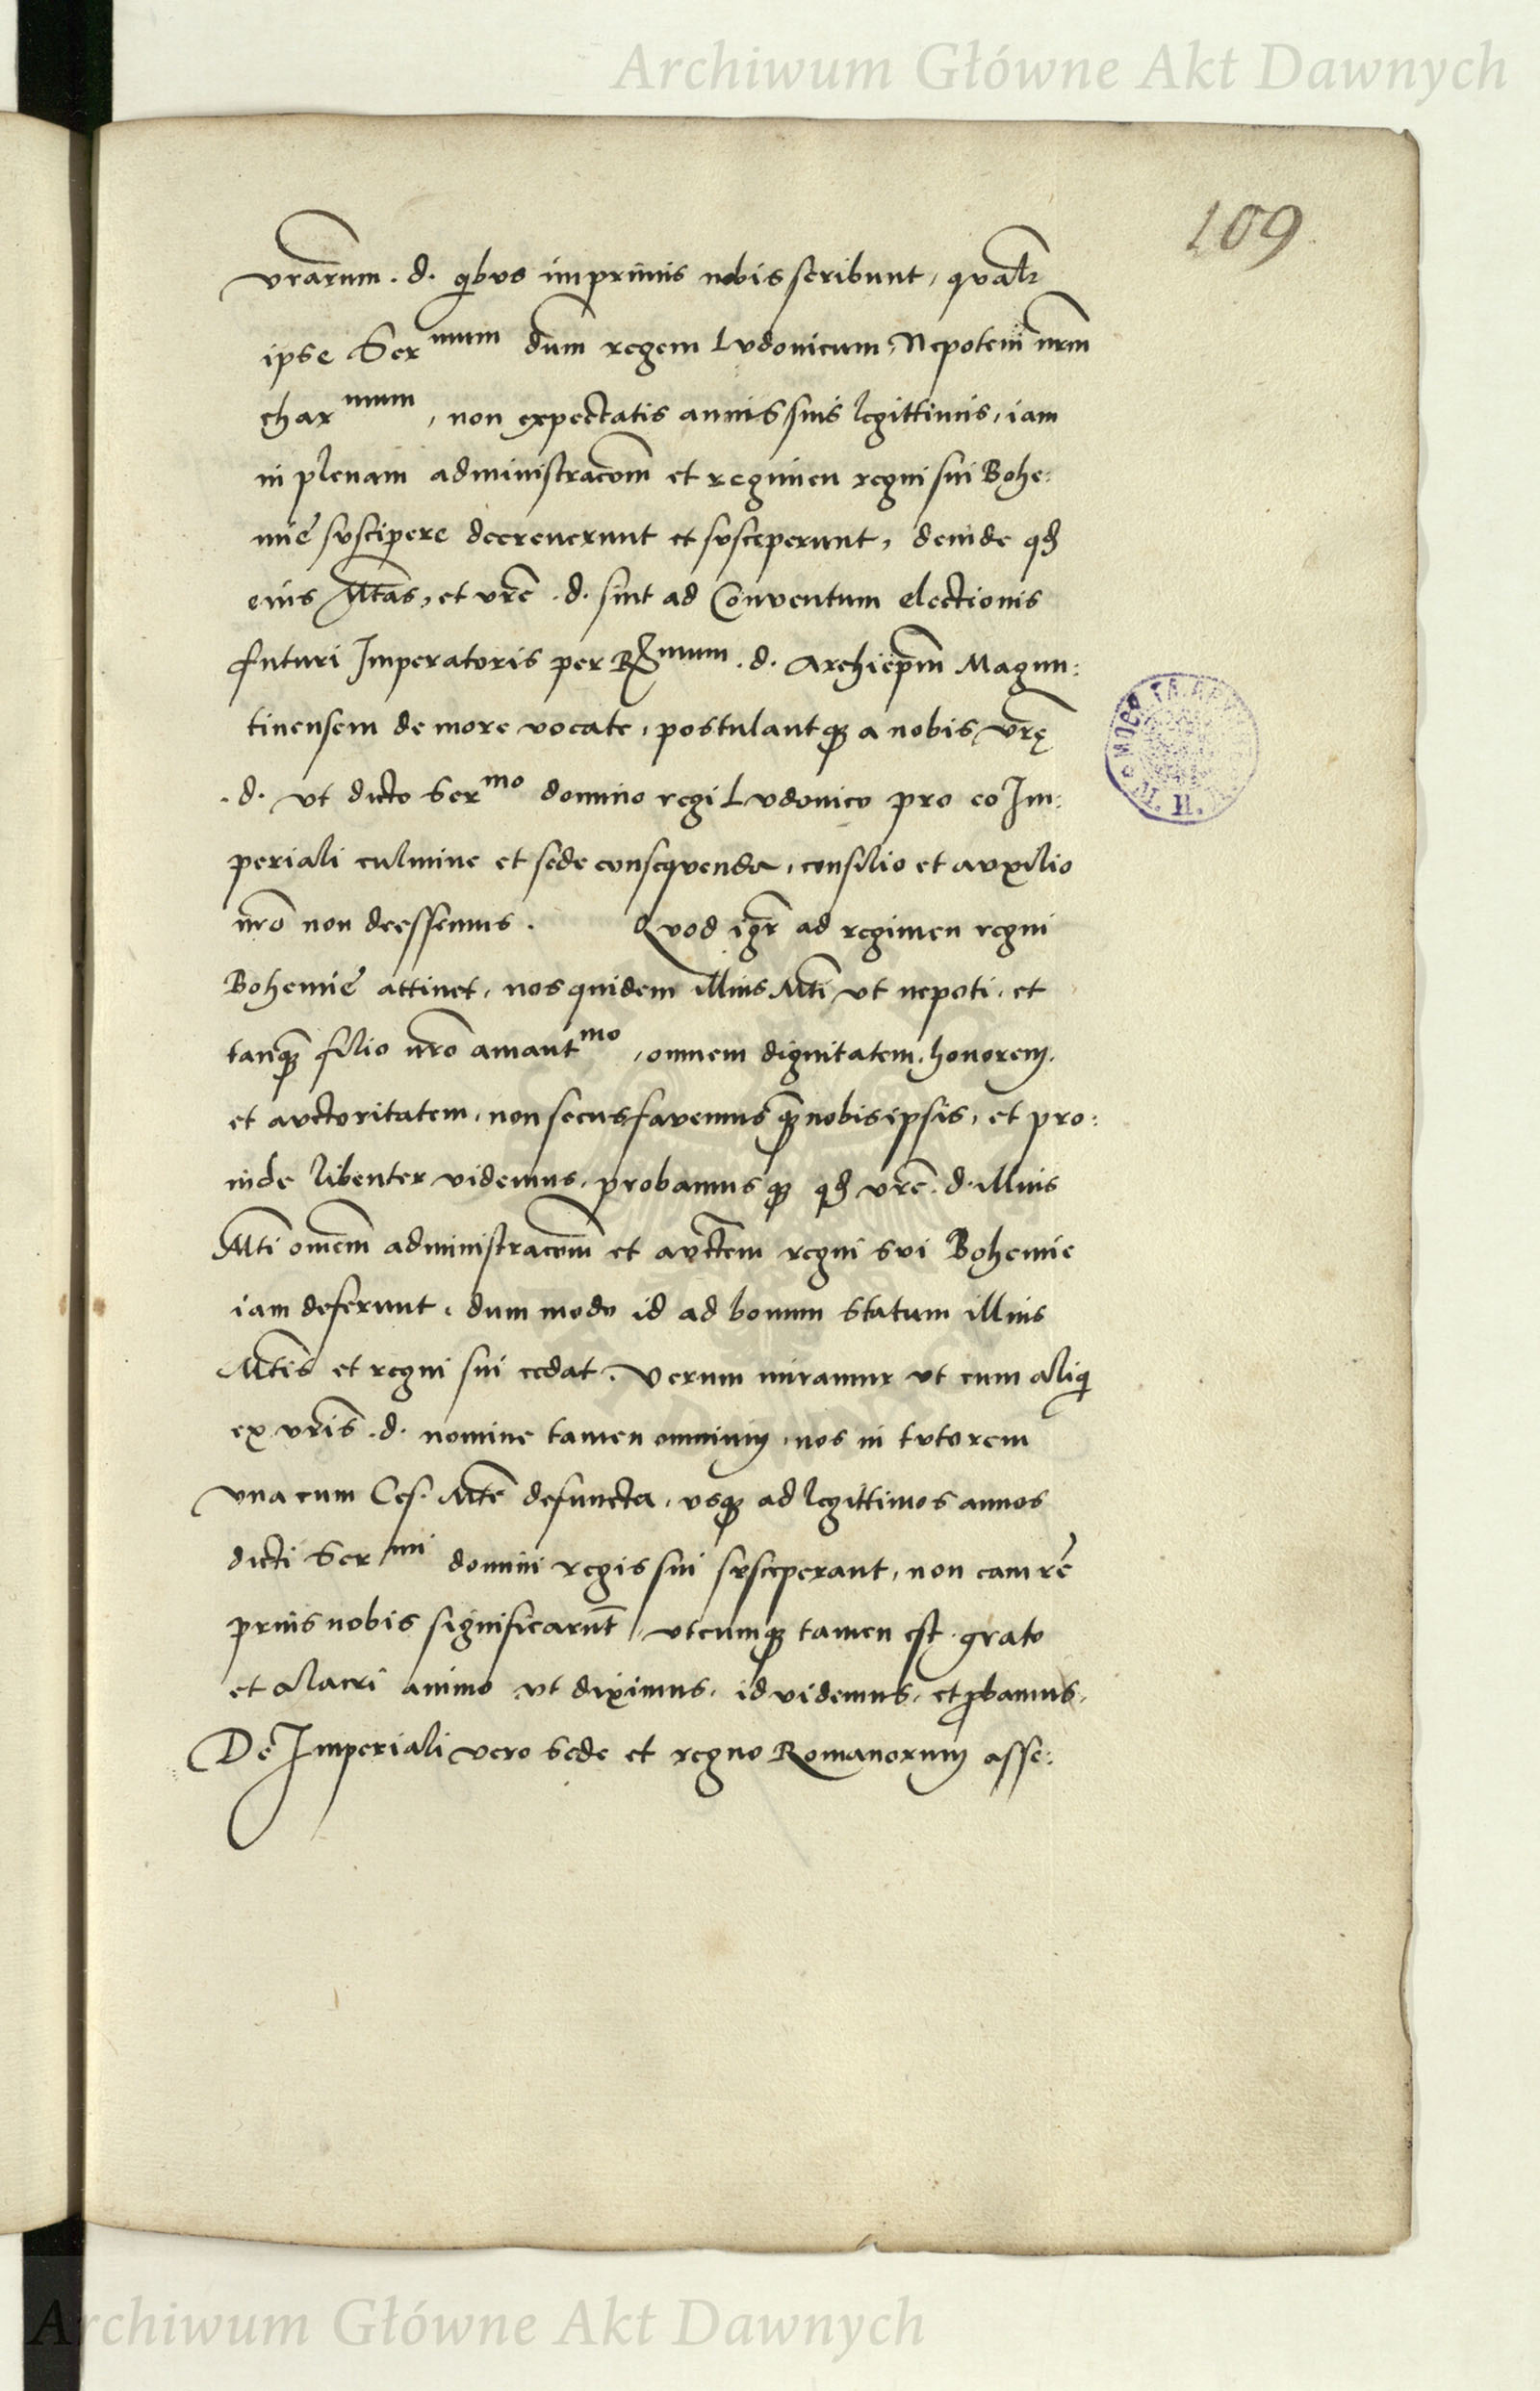 Archiwum Główne Akt Dawnych
109
vrarum . d. qibus imprimis nobis scribunt, qualr
ipse Ser mum dum regem Ludovicum, Nepotem nrm
char mum, non expectatis annis suis legittimis, iam
in plenam administracom et regimen regni sui Bohe:
mie suscipere decreverunt et susceperunt, deinde qd
eius Mtas, et vre . d. sint ad Conventum electionis
futuri Imperatoris per R mum . d. Archiepm Magun:
tinensem de more vocate, postulantq a nobis vrę
. d. ut dicto Ser mo domino regi Ludovico pro eo Im:
periali culmine et sede consequenda, consilio et auxilio
nro non deessemus. Quod igr ad regimen regni
Bohemie attinet, nos quidem illius Mti ut nepoti, et
tanq filio nro amant mo, omnem dignitatem, honorem,
et auctoritatem, non secus favemus q nobis ipsis, et pro:
inde libenter videmus, probamus q qd vre . d. illius
Mti omem administracom et auctem regni sui Bohemie
iam deferunt, dum modo id ad bonum statum illius
Mtis et regni sui cedat. Verum miramur ut cum aliqi
ex vris . d. nomine tamen omnium, nos in tutorem
una cum Ces. Mte defuncta, usq ad legittimos annos
dicti Ser mi domini regis sui susceperant, non eam re
prius nobis significarut, utcumq tamen est, grato
et alacri animo ut diximus, id videmus, et pbamus,
De Imperiali vero Sede et regno Romanorum asse:
Archiwum Główne Akt Dawnych